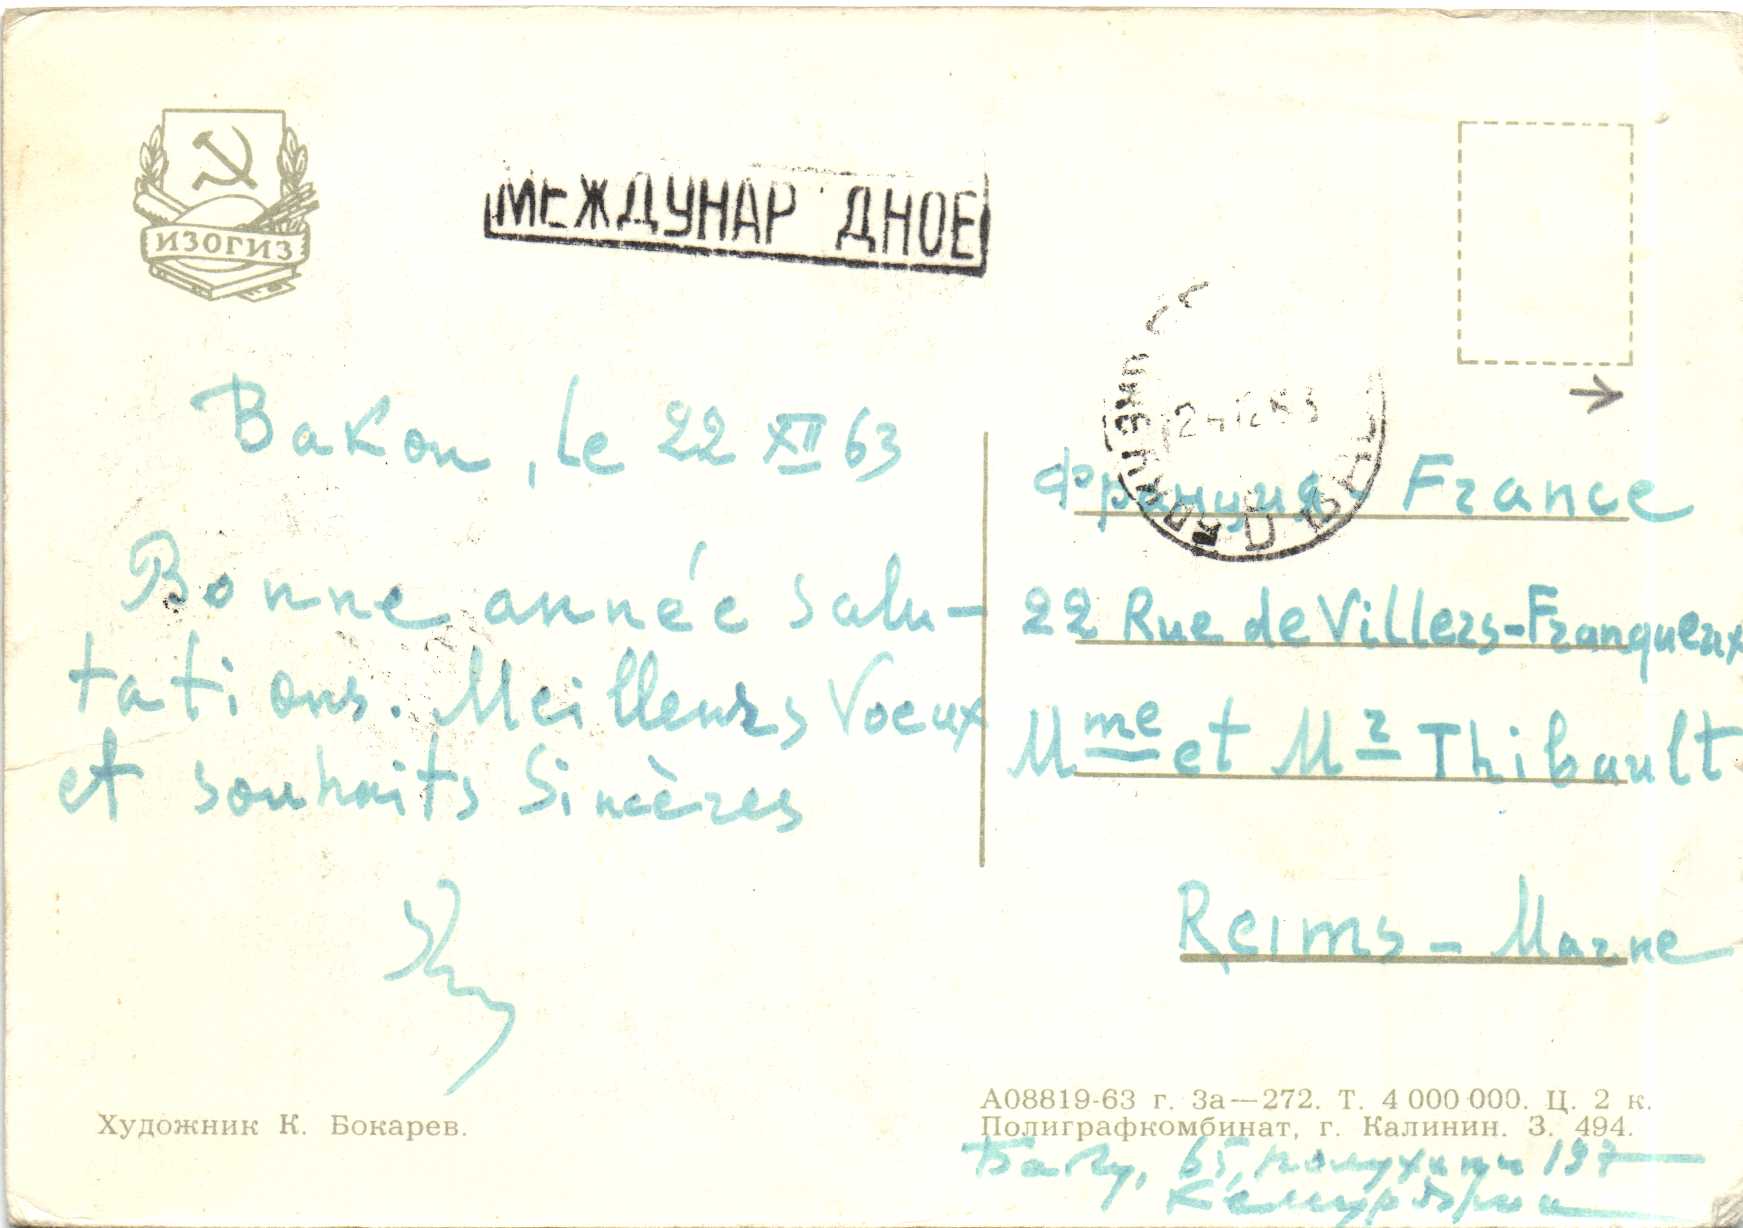 ИЗОГИЗ
МЕЖДУНАР ДНОЕ
Bakou, le 22 XII 63
Bonne année salu-
tations. Meilleurs Voeux
et souhaits sincères
Франция France
22 Rue de Villers-Franqueux
Mme et Mr Thibault
Reims - Marne
Художник К. Бокарев.
А08819-63 г. За—272. Т. 4 000 000. Ц. 2 к.
Полиграфкомбинат, г. Калинин. З. 494.
Баку, 65, 197